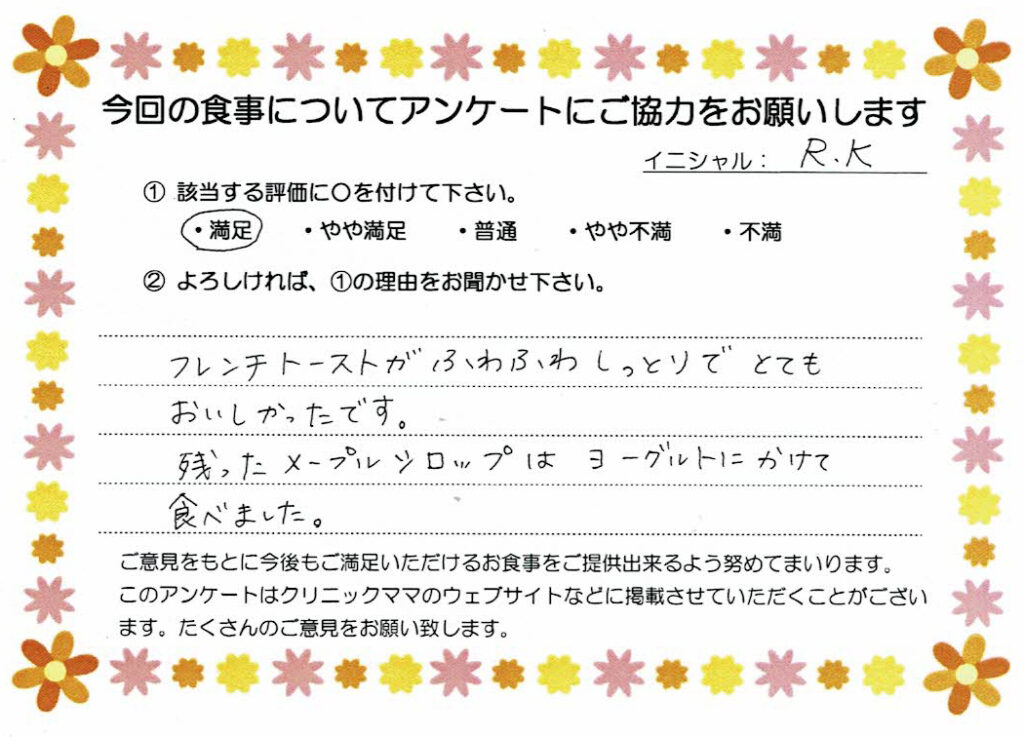 今回の食事についてアンケートにご協力をお願いします
イニシャル： R.K
① 該当する評価に〇を付けて下さい。
・満足 ・やや満足 ・普通 ・やや不満 ・不満
② よろしければ、①の理由をお聞かせ下さい。
フレンチトーストが ふわふわ しっとりで とても
おいしかったです。
残った メープルシロップは ヨーグルトに かけて
食べました。
ご意見をもとに今後もご満足いただけるお食事をご提供出来るよう努めてまいります。
このアンケートはクリニックママのウェブサイトなどに掲載させていただくことがござい
ます。たくさんのご意見をお願い致します。